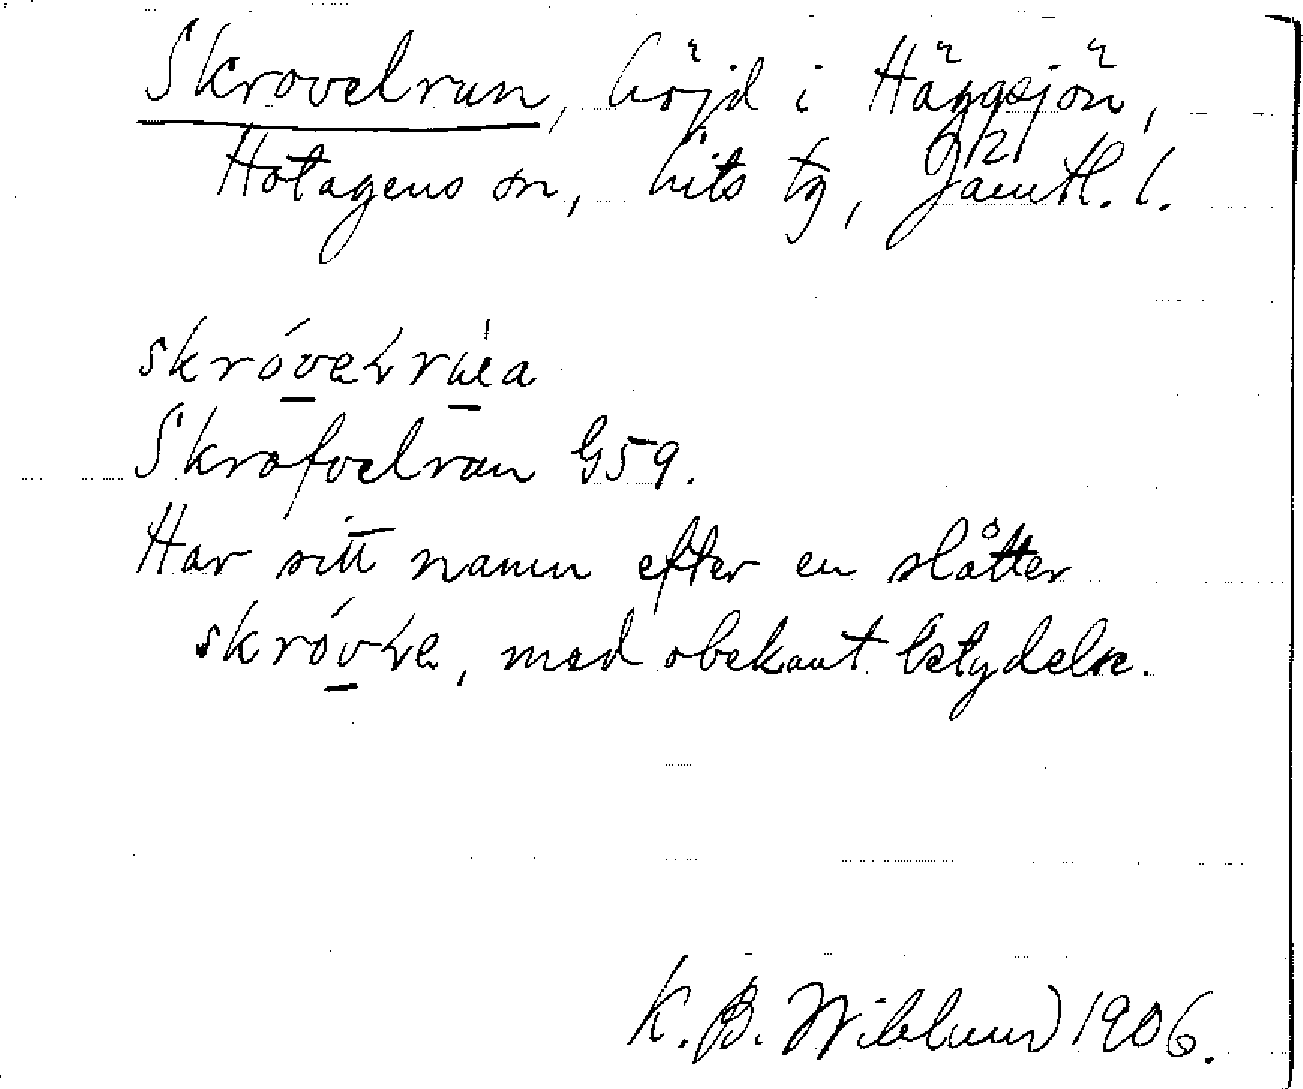 Skrovelrun, höjd i Häggsjön,
Hotagens sn, Lits tg, Jämtl. l.
Skrofvelrun G59.
Har sitt namn efter en slåtter
med obekant betydelse.
K. B. Wiklund 1906.